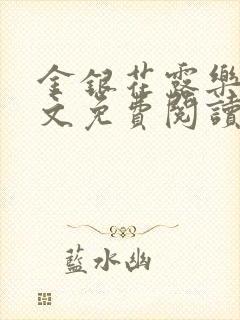 金銀花露樂
文免費閱讀
藍水幽